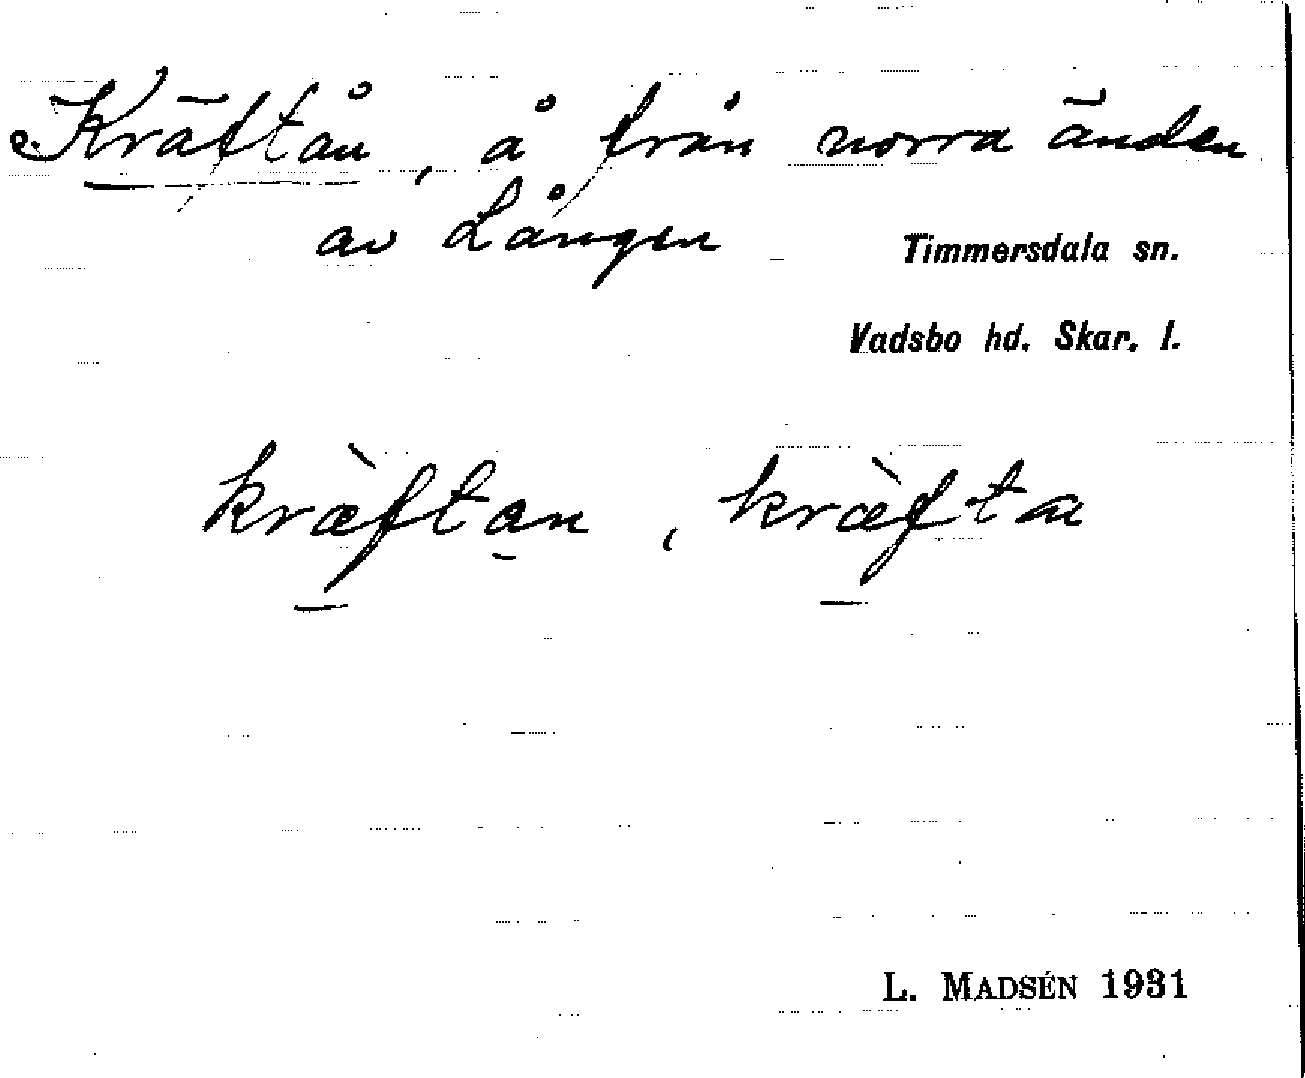 Kräftån, å från norra änden
av Lången
Timmersdala sn.
Vadsbo hd. Skar. l.
kræ̀ftan, kræ̀fta
L. MADSÉN 1931